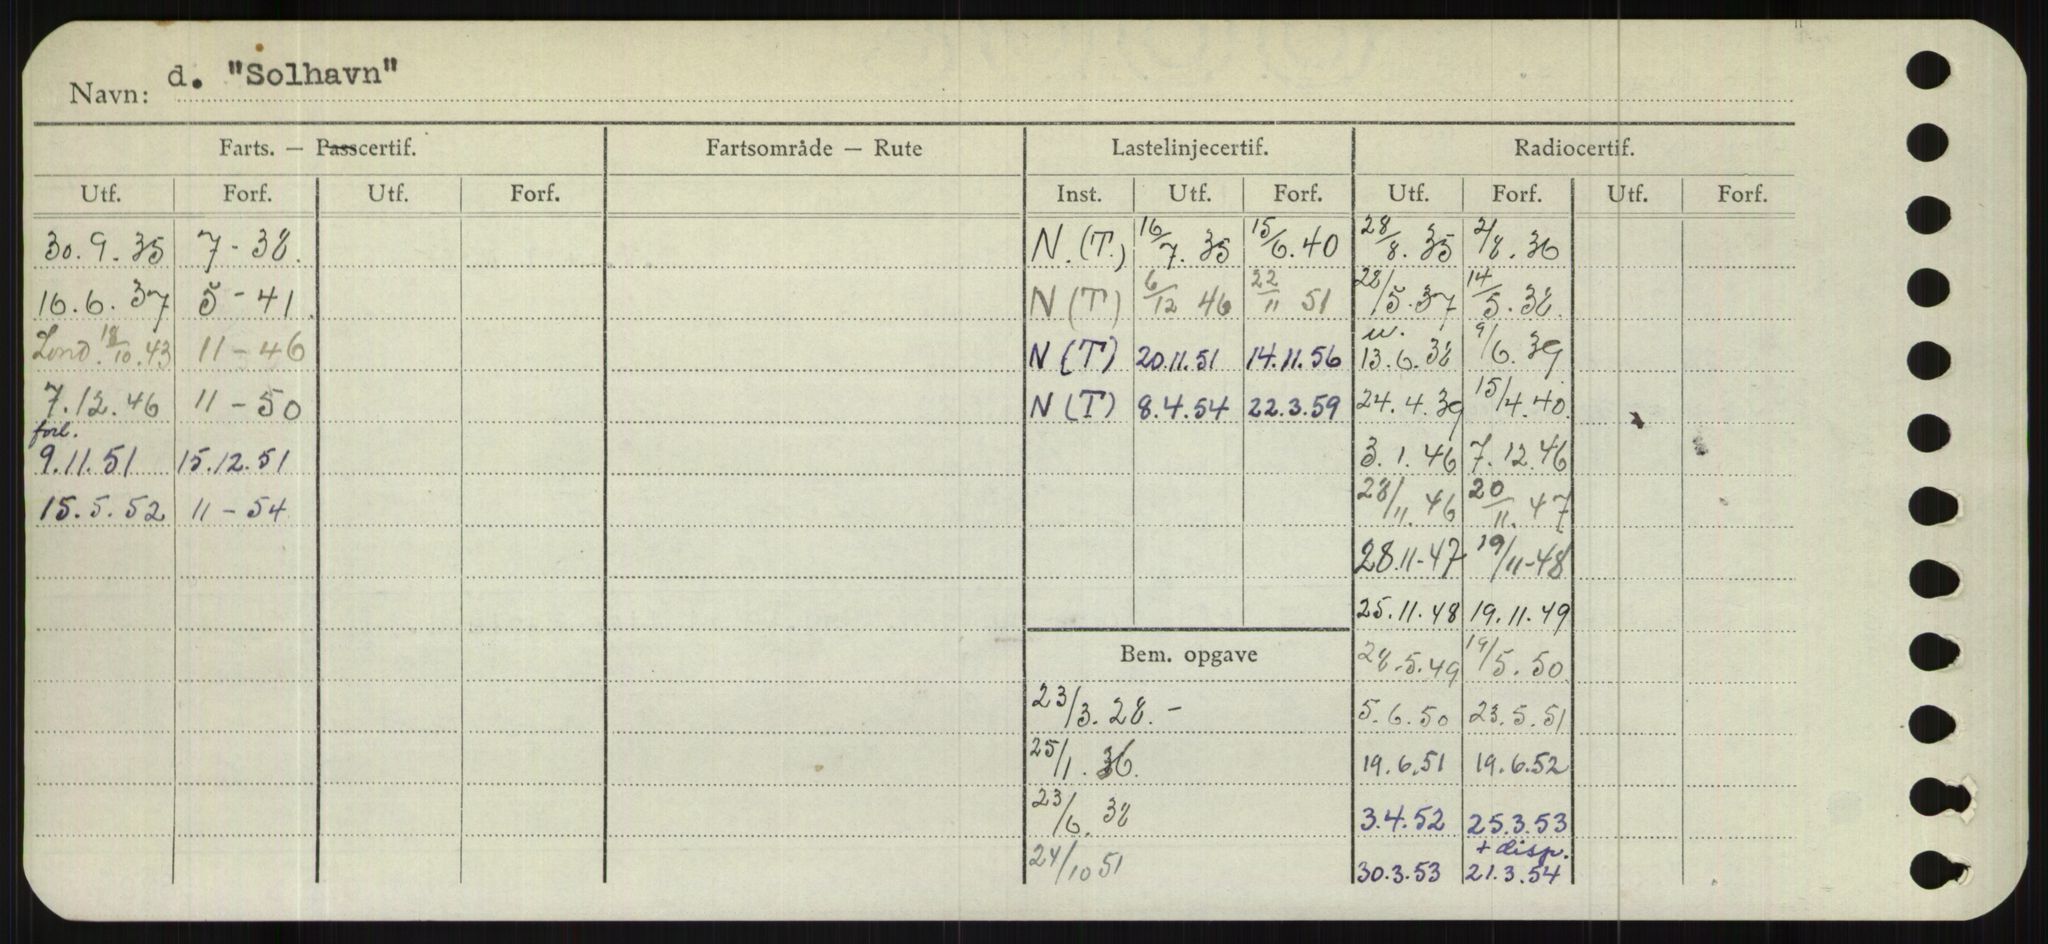 Navn: d. "Solhavn"
Farts. — Passcertif. Fartsområde — Rute Lastelinjecertif. Radiocertif.
Utf. Forf. Utf. Forf. Inst. Utf. Forf. Utf. Forf. Utf. Forf.
30.9.35 7-38. N.(T.) 16/7.35 15/6.40 28/8.35 2/8.36
16.6.37 5-41. N(T) 6/12 46 22/11 51 28/5.37 14/5.38
Lond. 18/10.43 11-46 N(T) 20.11.51 14.11.56 13.6.38 9/6.39
7.12.46 11-50 N(T) 8.4.54 22.3.59 24.4.39 15/4.40.
forl.
9.11.51 15.12.51 3.1.46 7.12.46
15.5.52 11-54 28/11.46 20/11.47
28.11-47 19/11-48
25.11.48 19.11.49
Bem. opgave 28-5.49 19/5.50
23/3.28.- 5.6.50 23.5.51
25/1.36. 19.6.51 19.6.52
23/6.38 3.4.52 25.3.53
+ disp.
24/10 51 30.3.53 21.3.54